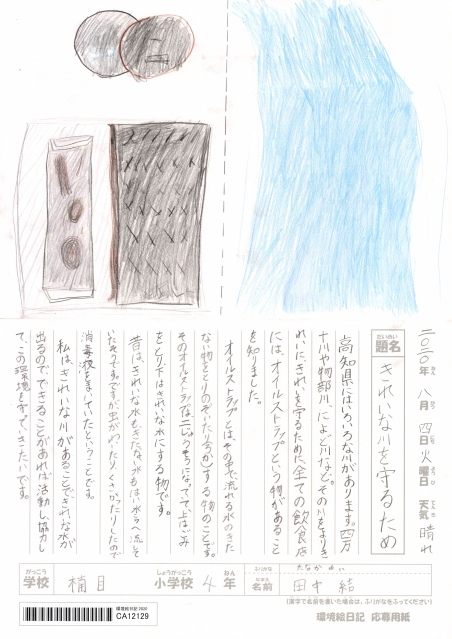 二〇二〇年 八月 四日 火曜日 天気 晴れ
だいめい
題名 きれいな川を守るため
高知県にはいろいろな川があります。四万
十川や物部川、によど川など。その川をよりき
れいにきれいを守るために全ての飲食店
には、オイルストラップという物があること
を知りました。
オイルストラップとは、その中で流れる水のきた
ない物をとりのぞいたり分かいする物のことです。
そのオイルストラップは、二じゅうそうになってて上はごみ
をとり下はきれいな水にする物です。
昔は、きれいな水もきたない水もはい水ろへ流して
いたそうです。ですが虫がわいたりくさかったりしたので
消毒液をまいていたということです。
私は、きれいな川があることできれいな水が
出るので、できることがあれば活動し協力し
て、この環境を守っていきたいです。
がっこう
学校 楠目
しょうがっこう
小学校 4 ねん 年
ふりがな たなか ゆい
なまえ
名前 田中 結
(漢字で名前を書いた場合は、ふりがなをふってください)
環境絵日記 2020
CA12129
環境絵日記 応募用紙